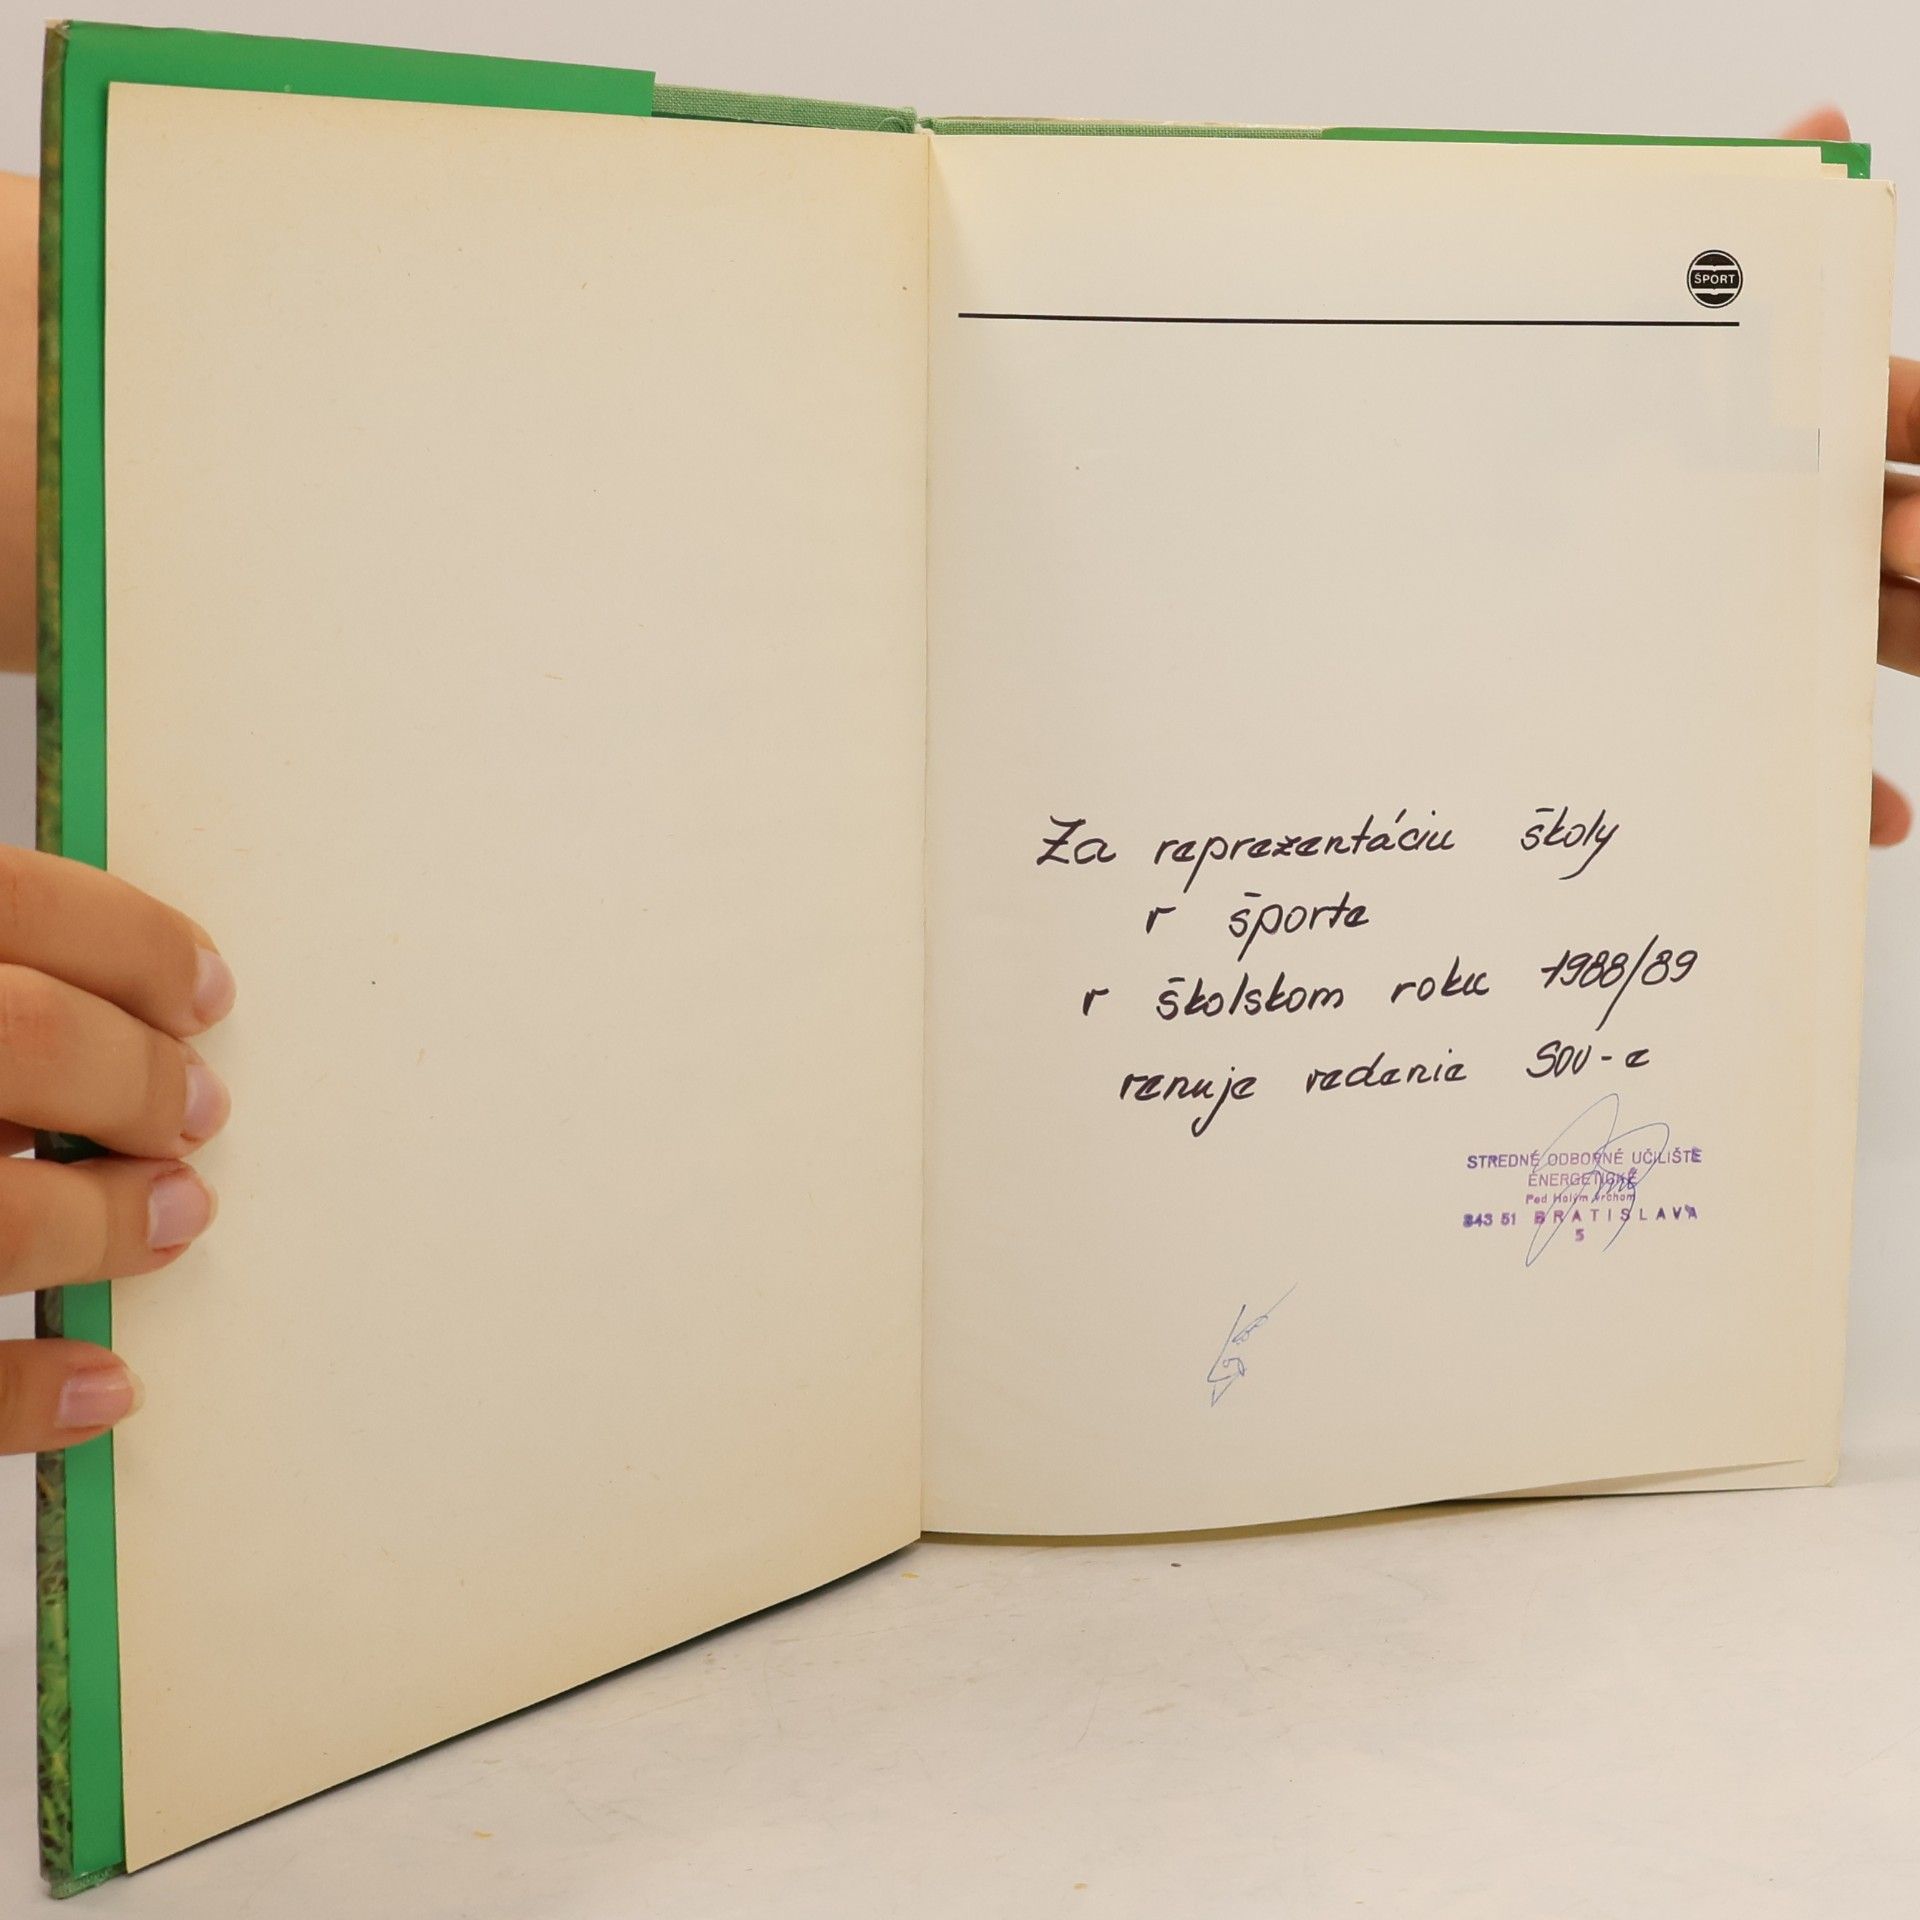 ŠPORT
Za reprezentáciu školy
v športe
v školskom roku 1988/89
venuje vedenie SOU-e
STREDNÉ ODBORNÉ UČILIŠTE
ENERGETICKÉ
Pod Holým vrchom
843 51 BRATISLAVA
5